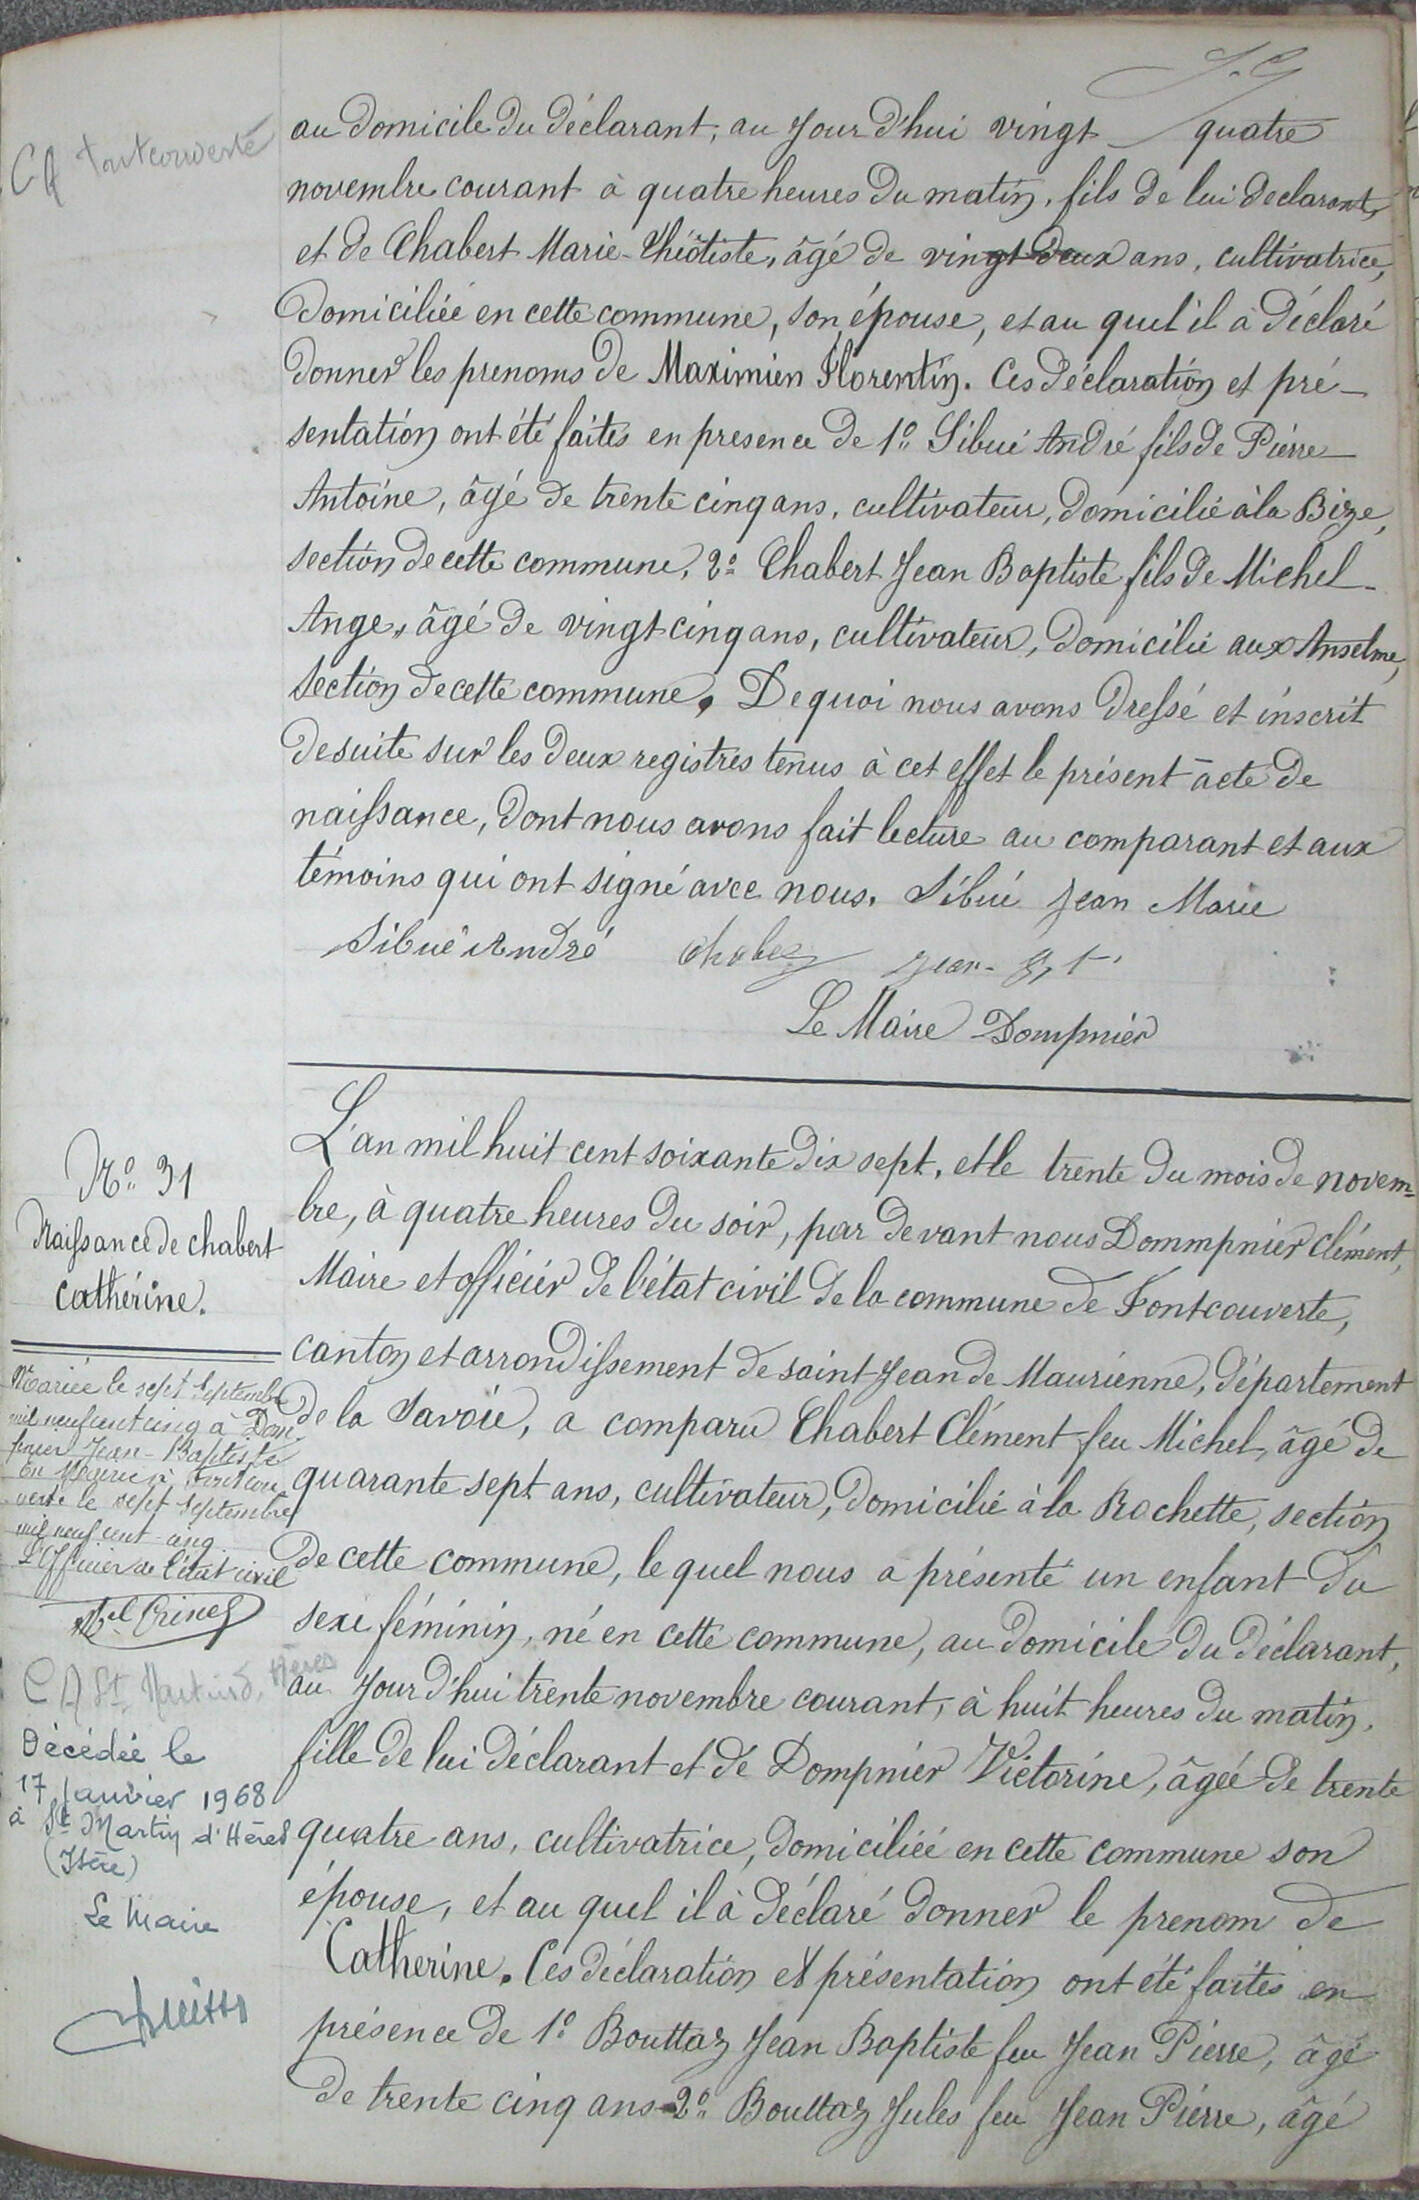 au domicile du déclarant, au jour d'hui vingt quatre
CA fontcouverte
novembre courant à quatre heures du matin, fils de lui declarant,
et de Chabert Marie-Théotiste, âgé de vingt deux ans, cultivatrice,
Domiciliée en cette commune, son épouse, et au quel il à déclaré
donner les prenoms de Maximien Florentin. Ces déclaration et pré-
sentation ont été faites en presence de 1º Sibué André fils de Pierre
Antoine, âgé de trente cinq ans, cultivateur, domicilié à la Bize,
section de cette commune, 2º Chabert Jean Baptiste fils de Michel-
Ange, âgé de vingt cinq ans, cultivateur, domicilié aux Anselme,
section de cette commune. De quoi nous avons dressé et inscrit
desuite sur les deux registres tenus à cet effet le présent acte de
naissance, dont nous avons fait lecture au comparant et aux
témoins qui ont signé avec nous. Sibué Jean Marie
Sibué André Jean-
Le Maire Dompnier
Nº 31
Naissance de chabert
Cathérine.
Mariée le sept septembre
mil neuf cent cinq à Dom-
pnier Jean-Baptiste
En Mairie à Fontcou-
verte le sept septembre
mil neuf cent cinq.
L'Officier de l'état civil
CA St Martin d'Hères
Décédée le
17 Janvier 1968
à St Martin d'Hères
(Isère)
Le Maire
L'an mil huit cent soixante dix sept, et le trente du mois de novem=
bre, à quatre heures du soir, par devant nous Dommpnier Clément,
Maire et officier de l'état civil de la commune de Fontcouverte,
canton et arrondissement de saint Jean de Maurienne, département
de la Savoie, a comparu Chabert Clément feu Michel, âgé de
quarante sept ans, cultivateur, domicilié à la Rochette, section
de cette commune, le quel nous a présenté un enfant du
sexe féminin, né en cette commune, au domicile du déclarant,
au jour d'hui trente novembre courant, à huit heures du matin,
fille de lui déclarant et de Dompnier Victorine, âgée de trente
quatre ans, cultivatrice, domiciliée en cette commune son
épouse, et au quel il à déclaré donner le prenom de
Catherine. Ces déclaration et présentation ont été faites en
présence de 1º Bouttaz Jean Baptiste feu Jean Pierre, âgé
de trente cinq ans 2º Bouttaz Jules feu Jean Pierre, âgé